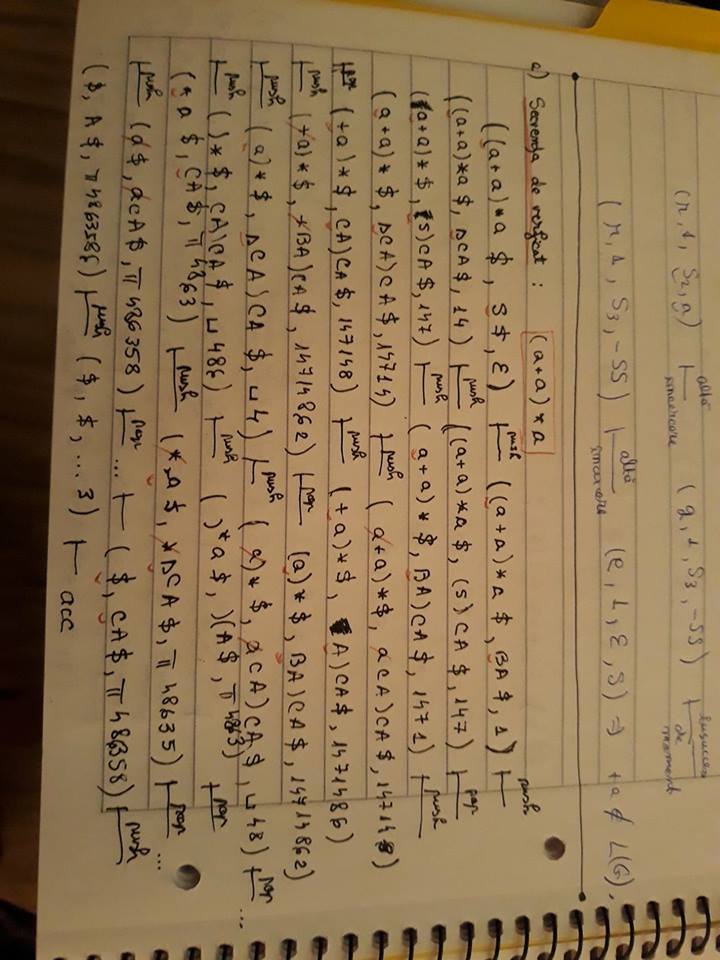 (r, 1, S₂, a) |altă încercare (q, 1, S₃, -SS) |insucces de moment
(r, 1, S₃, -SS) |altă încercare (e, 1, ε, S) ⇒ +a ∉ L(G).
a) Secvența de verficat : (a+a)*a
((a+a)*a $, S$, ε) |push ((a+a)*a $, BA$, 1) |push
((a+a)*a $, DCA$, 14) |push ((a+a)*a$, (S)CA$, 147) |pop
(a+a)*$, S)CA$, 147) |push (a+a)*$, BA)CA$, 1471) |push
(a+a)*$, DCA)CA$, 14714) |push (a+a)*$, aCA)CA$, 147148)
|pop (+a)*$, CA)CA$, 147148) |push (+a)*$, A)CA$, 1471486)
|push (+a)*$, +BA)CA$, 14714862) |pop (a)*$, BA)CA$, 14714862)
|push (a)*$, DCA)CA$, ⊔4) |push (a)*$, aCA)CA$, ⊔48) |pop ...
|push ()*$, CA)CA$, ⊔486) |push ()*a$, )CA$, π4863) |pop
(*a$, CA$, π4863) |push (*a$, *DCA$, π48635) |pop ...
|push (a$, aCA$, π486358) |pop ... ⊢ ($, CA$, π486358) |push
($, A$, π4863586) |push ($, $, ...3) ⊢ acc